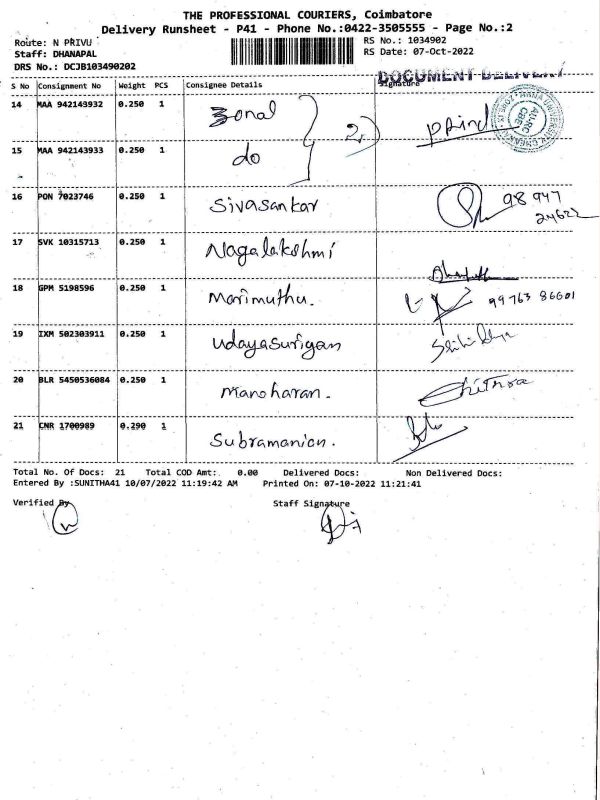 THE PROFESSIONAL COURIERS, Coimbatore
Delivery Runsheet - P41 - Phone No.:0422-3505555 - Page No.:2
Route: N PRIVU
RS No.: 1034902
Staff: DHANAPAL
RS Date: 07-Oct-2022
DRS No.: DCJB103490202
DOCUMENT DELIVERY
S No Consignment No Weight PCS Consignee Details Signature
14 MAA 942143932 0.250 1 Zonal
15 MAA 942143933 0.250 1 do
16 PON 7023746 0.250 1 Sivasankar 98 947
24622
17 SVK 10315713 0.250 1 Nagalakshmi
18 GPM 5198596 0.250 1 Marimuthu. 99763 86601
19 IXM 502303911 0.250 1 Udayasurigan
20 BLR 5450536084 0.250 1 Manoharan. Chitnra
21 CNR 1700989 0.290 1 Subramanian.
Total No. Of Docs: 21 Total COD Amt:. 0.00 Delivered Docs: Non Delivered Docs:
Entered By :SUNITHA41 10/07/2022 11:19:42 AM Printed On: 07-10-2022 11:21:41
Verified By Staff Signature